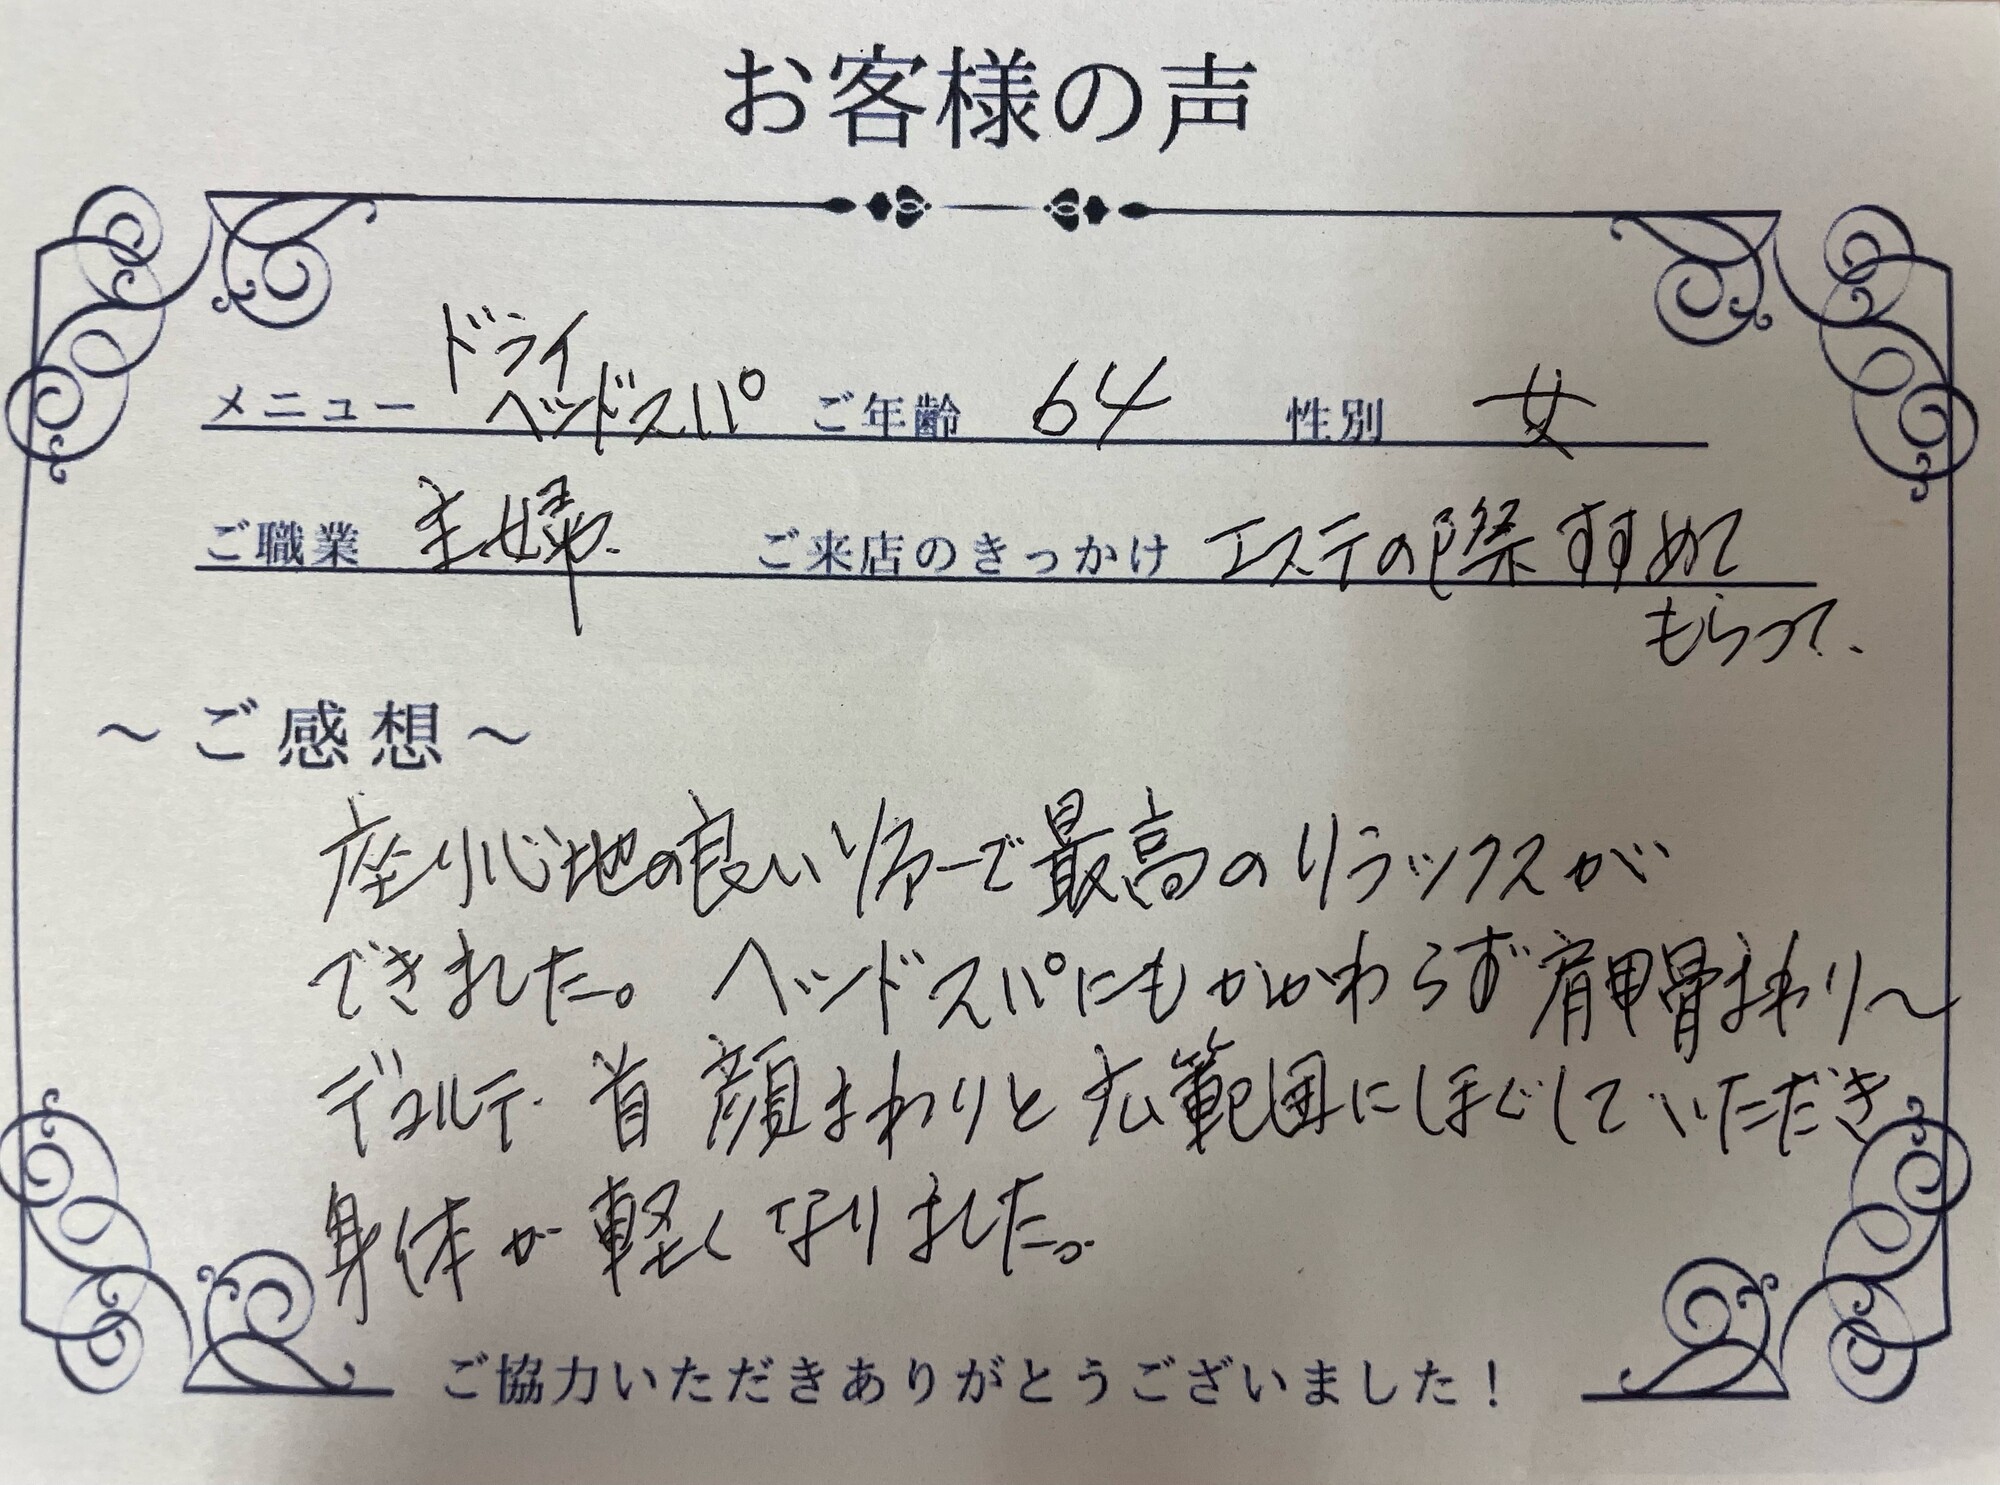 お客様の声
ドライ
メニュー ヘッドスパ ご年齢 64 性別 女
ご職業 主婦. ご来店のきっかけ エステの際すすめて
もらって、
～ご感想～
座り心地の良いソファーで最高のリラックスが
できました。ヘッドスパにもかかわらず肩甲骨まわり～
デコルテ・首 顔まわりと広範囲にほぐしていただき
身体が軽くなりました。
ご協力いただきありがとうございました!